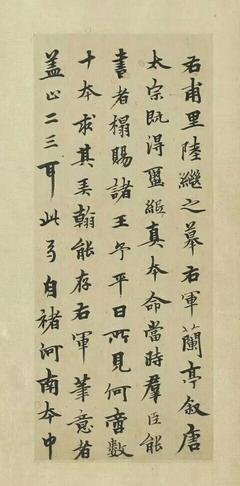 右甫里陸繼之摹右軍蘭亭叙唐
太宗既得蠒紙真本命當時羣臣能
書者搨賜諸王予平日所見何啻數
十本求其弄翰能存右軍筆意者
蓋止二三耳此乃自褚河南本中